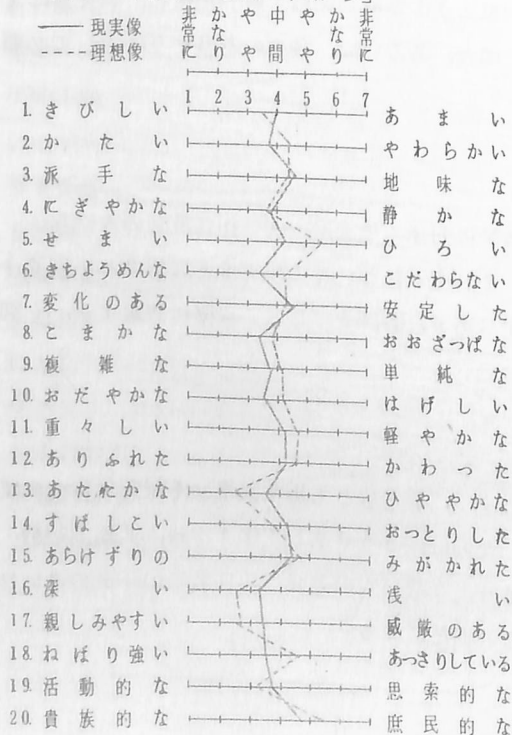 現実像
理想像
非常に かなり やや 中間 やや かなり 非常に
1 2 3 4 5 6 7
1. きびしい あまい
2. かたい やわらかい
3. 派手な 地味な
4. にぎやかな 静かな
5. せまい ひろい
6. きちようめんな こだわらない
7. 変化のある 安定した
8. こまかな おおざっぱな
9. 複雑な 単純な
10. おだやかな はげしい
11. 重々しい 軽やかな
12. ありふれた かわった
13. あたたかな ひややかな
14. すばしこい おっとりした
15. あらけずりの みがかれた
16. 深い 浅い
17. 親しみやすい 威厳のある
18. ねばり強い あっさりしている
19. 活動的な 思索的な
20. 貴族的な 庶民的な